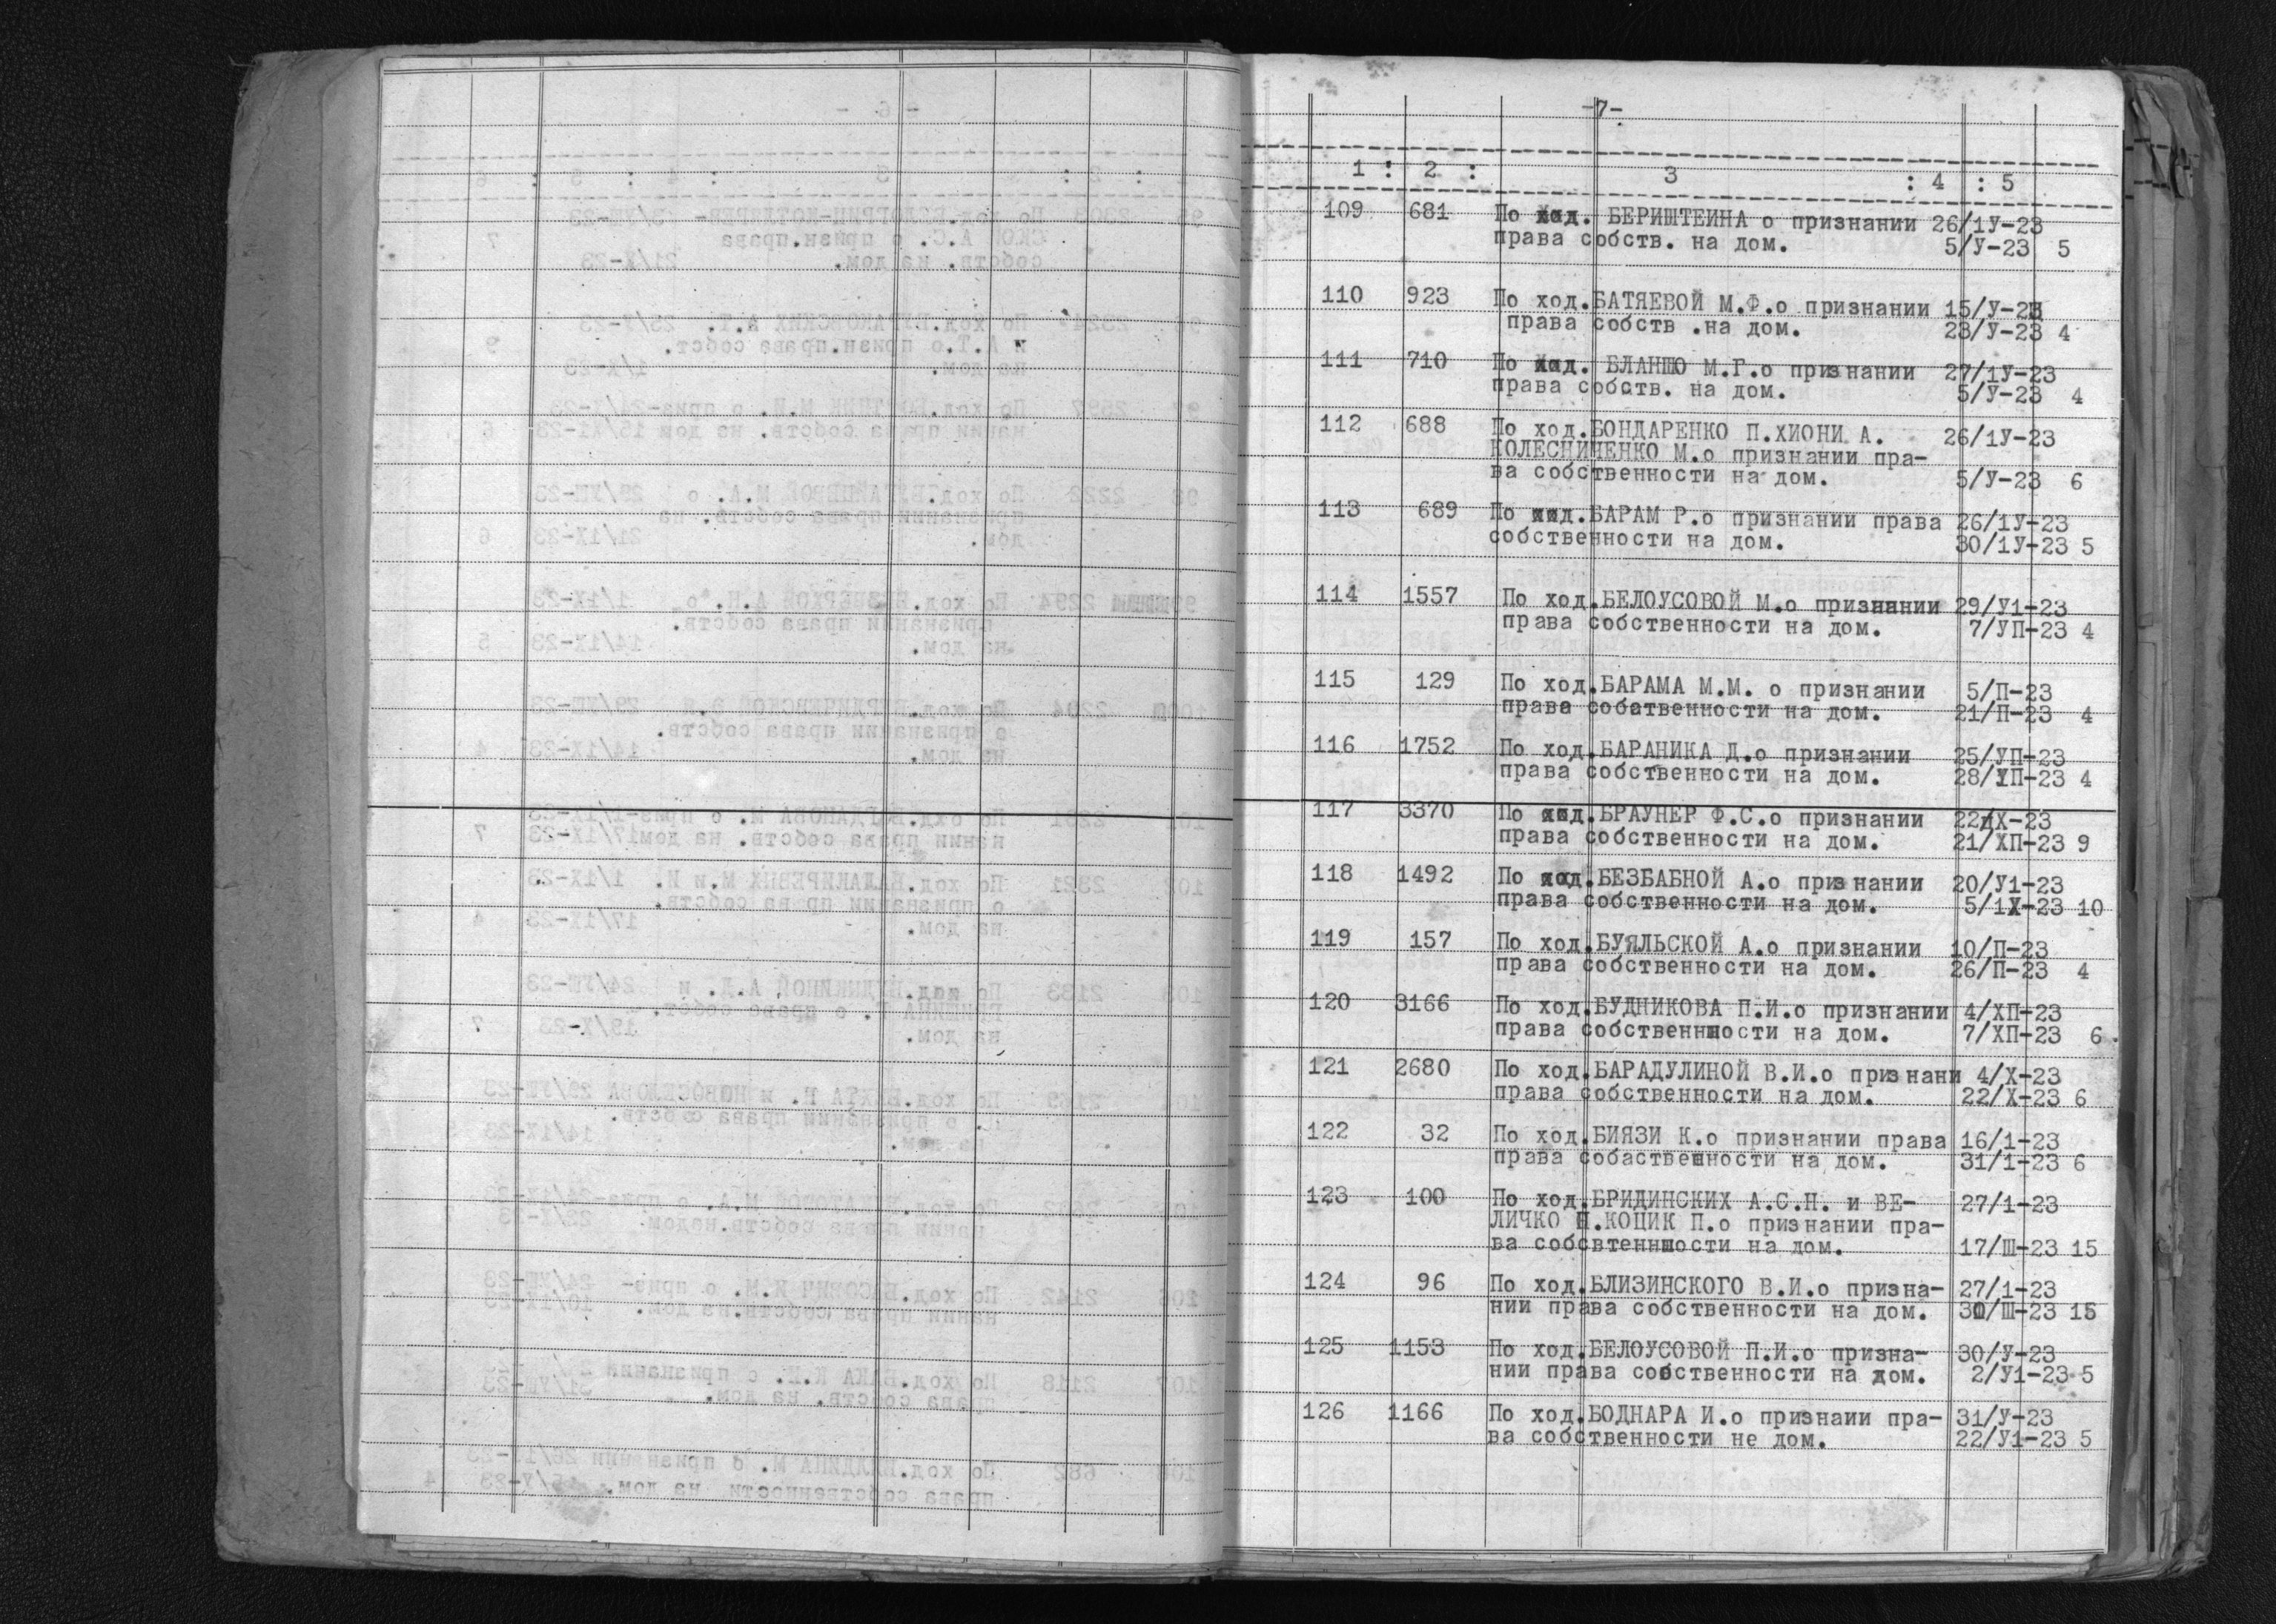 -7-
1 : 2 : 3 : 4 : 5
109 681 По ход. БЕРИШТЕИНА о признании 26/1У-23
права собств. на дом. 5/У-23 5
110 923 По ход.БАТЯЕВОЙ М.Ф.о признании 15/У-23
права собств .на дом. 23/У-23 4
111 710 По ход. БЛАНШО М.Г.о признании 27/1У-23
права собств. на дом. 5/У-23 4
112 688 По ход.БОНДАРЕНКО П.ХИОНИ А. 26/1У-23
КОЛЕСНИЧЕНКО М.о признании пра-
ва собственности на дом. 5/У-23 6
113 689 По ход.БАРАМ Р.о признании права 26/1У-23
собственности на дом. 30/1У-23 5
114 1557 По ход.БЕЛОУСОВОЙ М.о признании 29/У1-23
права собственности на дом. 7/УП-23 4
115 129 По ход.БАРАМА М.М. о признании 5/П-23
права собатвенности на дом. 21/П-23 4
116 1752 По ход.БАРАНИКА Д.о признании 25/УП-23
права собственности на дом. 28/УП-23 4
117 3370 По ход.БРАУНЕР Ф.С.о признании 22/1Х-23
права собственности на дом. 21/ХП-23 9
118 1492 По ход.БЕЗБАБНОЙ А.о признании 20/У1-23
права собственности на дом. 5/1Х-23 10
119 157 По ход.БУЯЛЬСКОЙ А.о признании 10/П-23
права собственности на дом. 26/П-23 4
120 3166 По ход.БУДНИКОВА П.И.о признании 4/ХП-23
права собственнности на дом. 7/ХП-23 6
121 2680 По ход.БАРАДУЛИНОЙ В.И.о признани 4/Х-23
права собственности на дом. 22/Х-23 6
122 32 По ход.БИЯЗИ К.о признании права 16/1-23
права собаственности на дом. 31/1-23 6
123 100 По ход.БРИДИНСКИХ А.С.Н. и ВЕ- 27/1-23
ЛИЧКО Н.КОЦИК П.о признании пра-
ва собсвтеннности на дом. 17/Ш-23 15
124 96 По ход.БЛИЗИНСКОГО В.И.о призна- 27/1-23
нии права собственности на дом. 30/Ш-23 15
125 1153 По ход.БЕЛОУСОВОЙ П.И.о призна- 30/У-23
нии права собственности на дом. 2/У1-23 5
126 1166 По ход.БОДНАРА И.о признаии пра- 31/У-23
ва собственности не дом. 22/У1-23 5